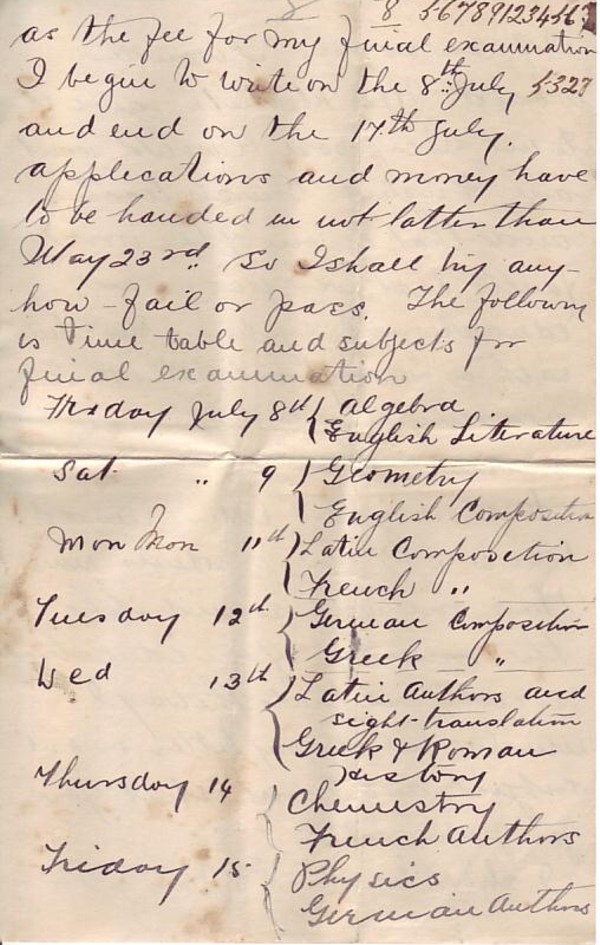 8 5678912345678
as the fee for my final examination
I begin to write on the 8th July 5327
and end on the 17th July.
applications and money have
to be handed in not latter than
May 23rd. So I shall try any-
how - fail or pass. The following
is Time table and subjects for
final examination
Friday July 8th { Algebra
{ English Literature
Sat. " 9 { Geometry
{ English Composition
Mon Mon 11th { Latin Composition
{ French "
Tuesday 12th { German Composition
Greek "
Wed 13th { Latin Authors and
sight-translation
Greek & Roman
History
Thursday 14 { Chemistry
French Authors
Friday 15 { Physics
German Authors